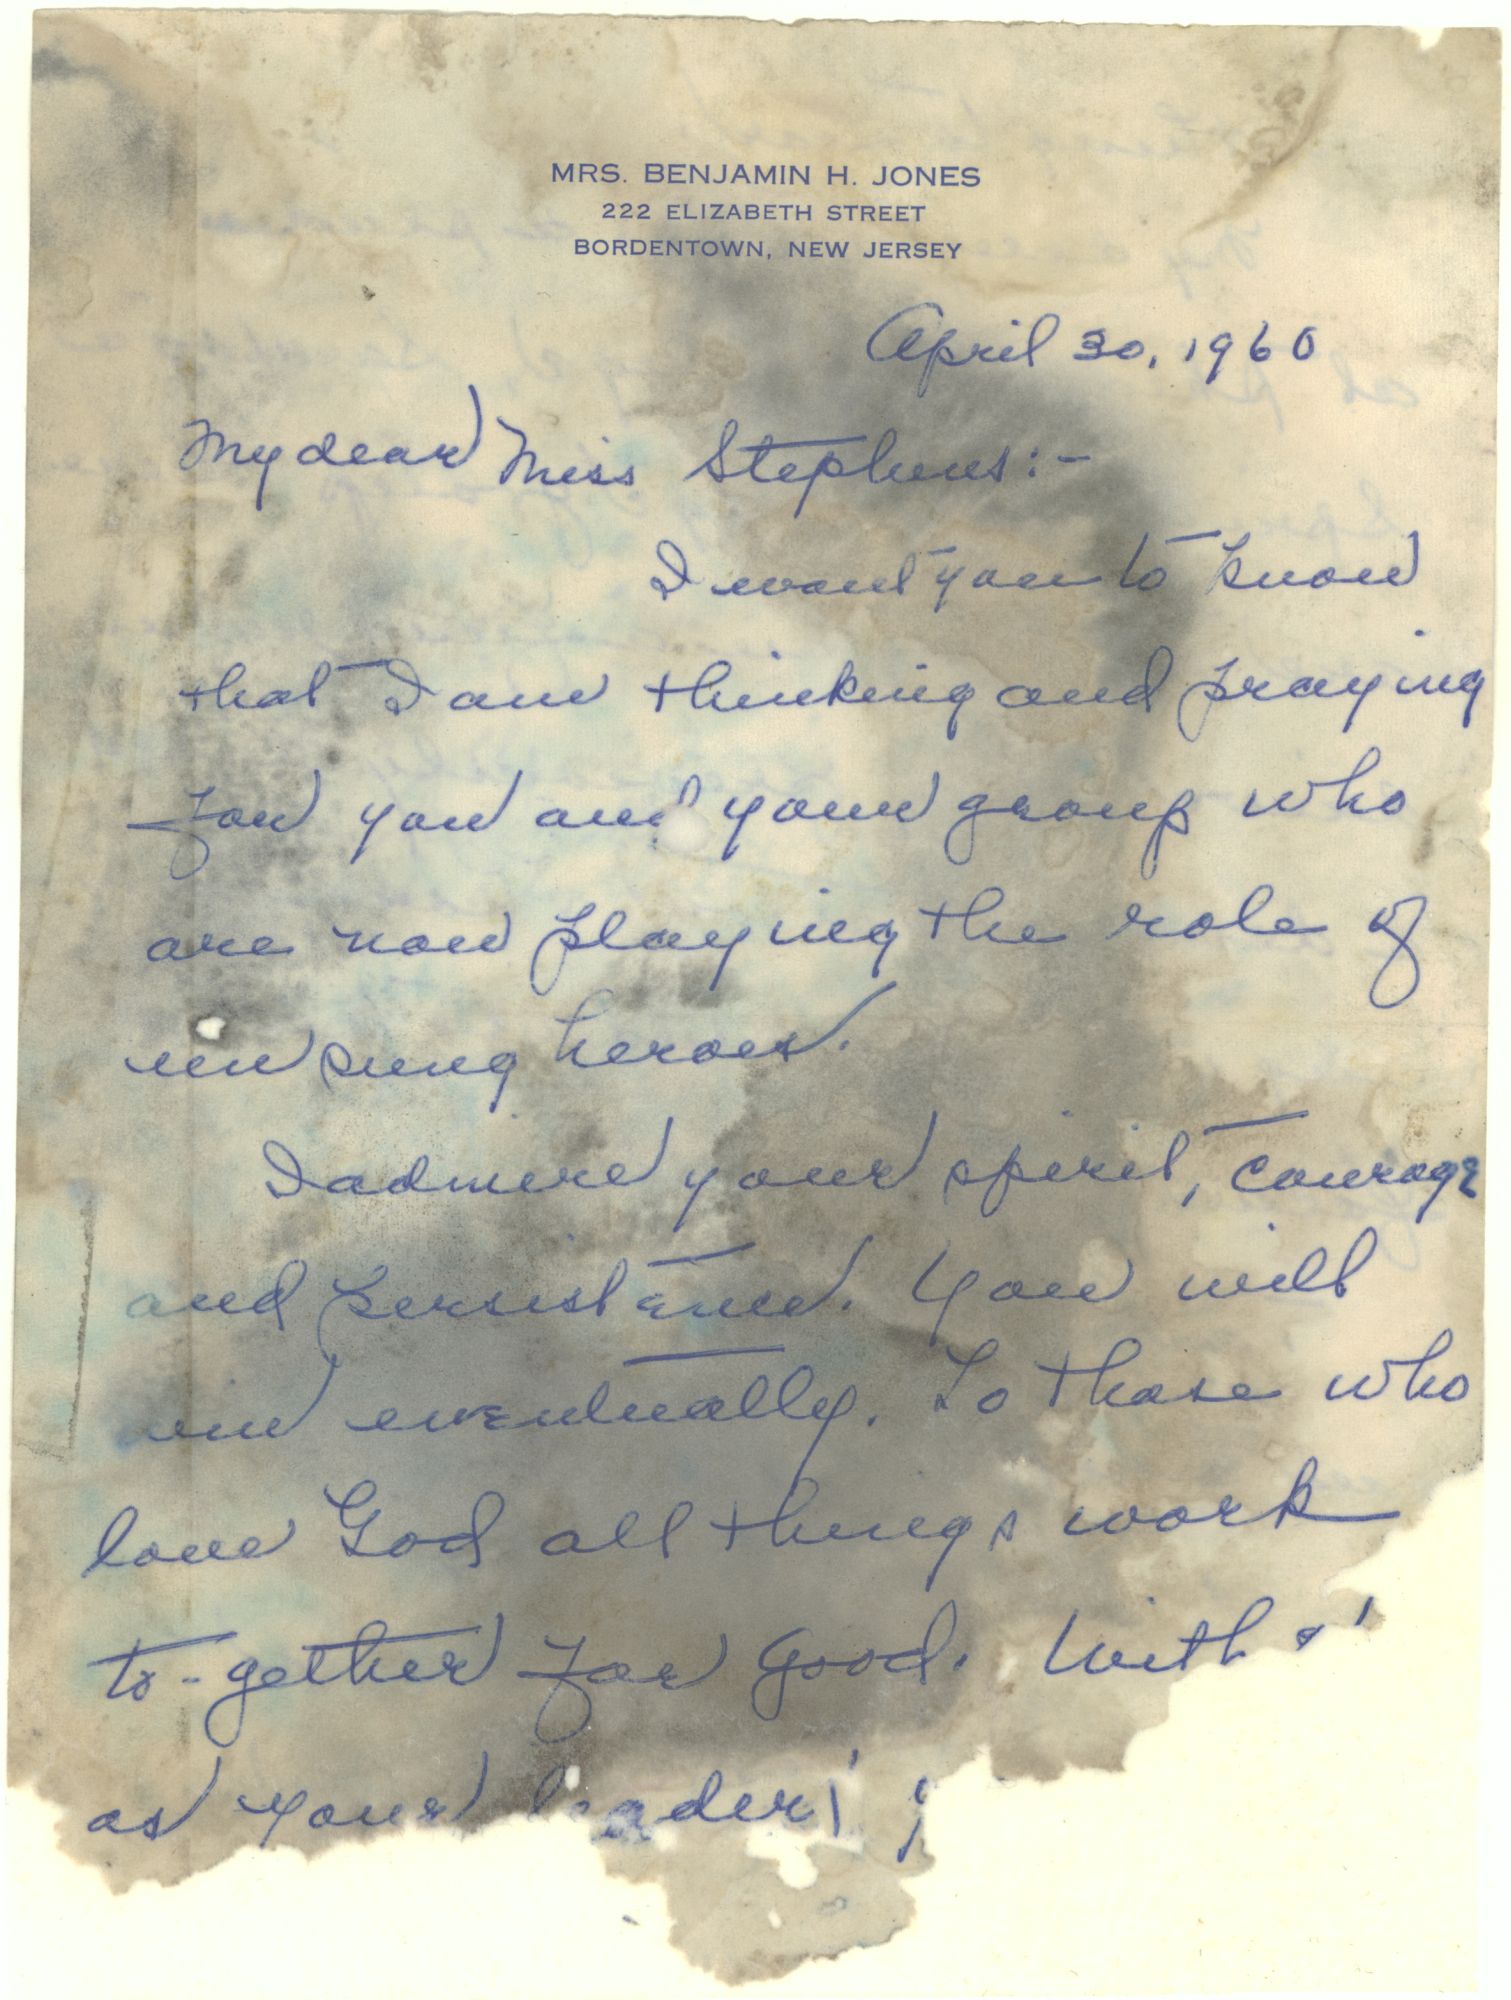 MRS. BENJAMIN H. JONES
222 ELIZABETH STREET
BORDENTOWN, NEW JERSEY
April 30, 1960
My dear Miss Stephens:-
I want you to know
that I am thinking and praying
for you and your group who
are now playing the role of
un sung heroes.
I admire your spirit, courage
and persistence. You will
win eventually. To those who
love God all things work
to-gether for Good. With
as your leader